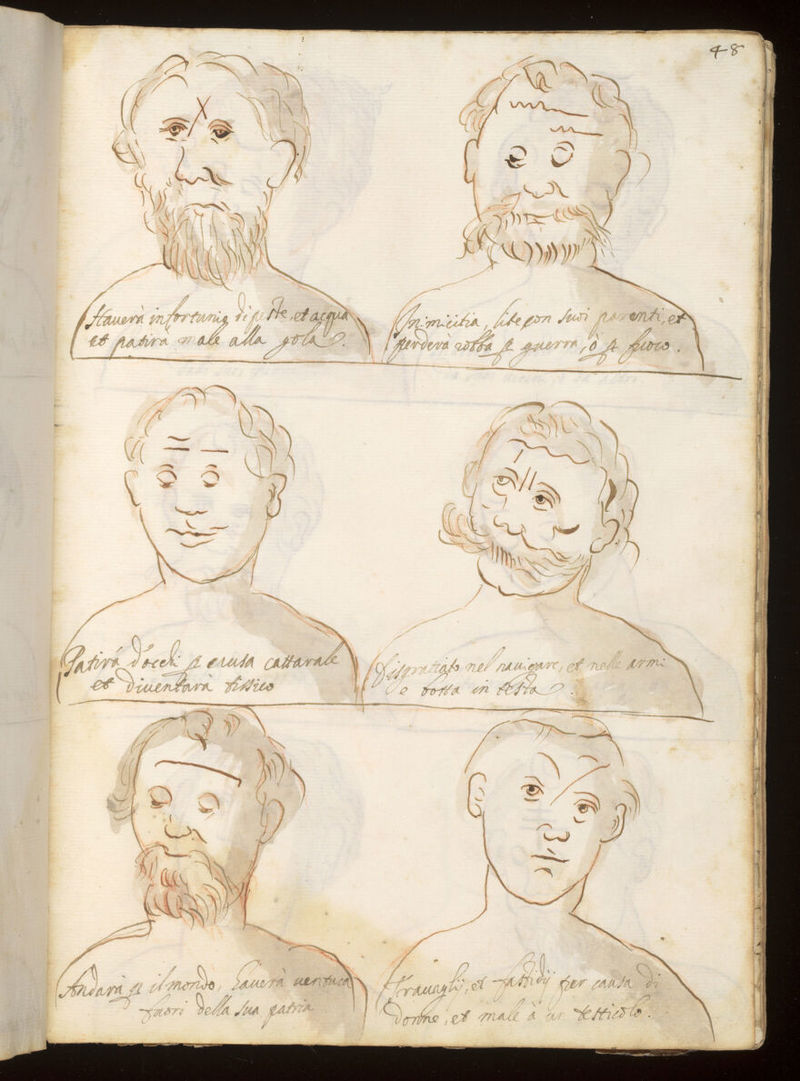 48
Haverà infortunij di peste, et acqua
et patirà male alla gola.
Inimicitia, lite con suoi parenti, et
perderà robba p guerra, ò p fuoco.
Patirà d'occhi p causa cattarale
et diventarà tissico
Disgratiato nel navigare, et nelle armi
e botta in testa.
Andarà p il mondo, haverà ventura
fuori della sua patria
Travaglij, et fastidij per causa di
donne, et male à un testicolo.